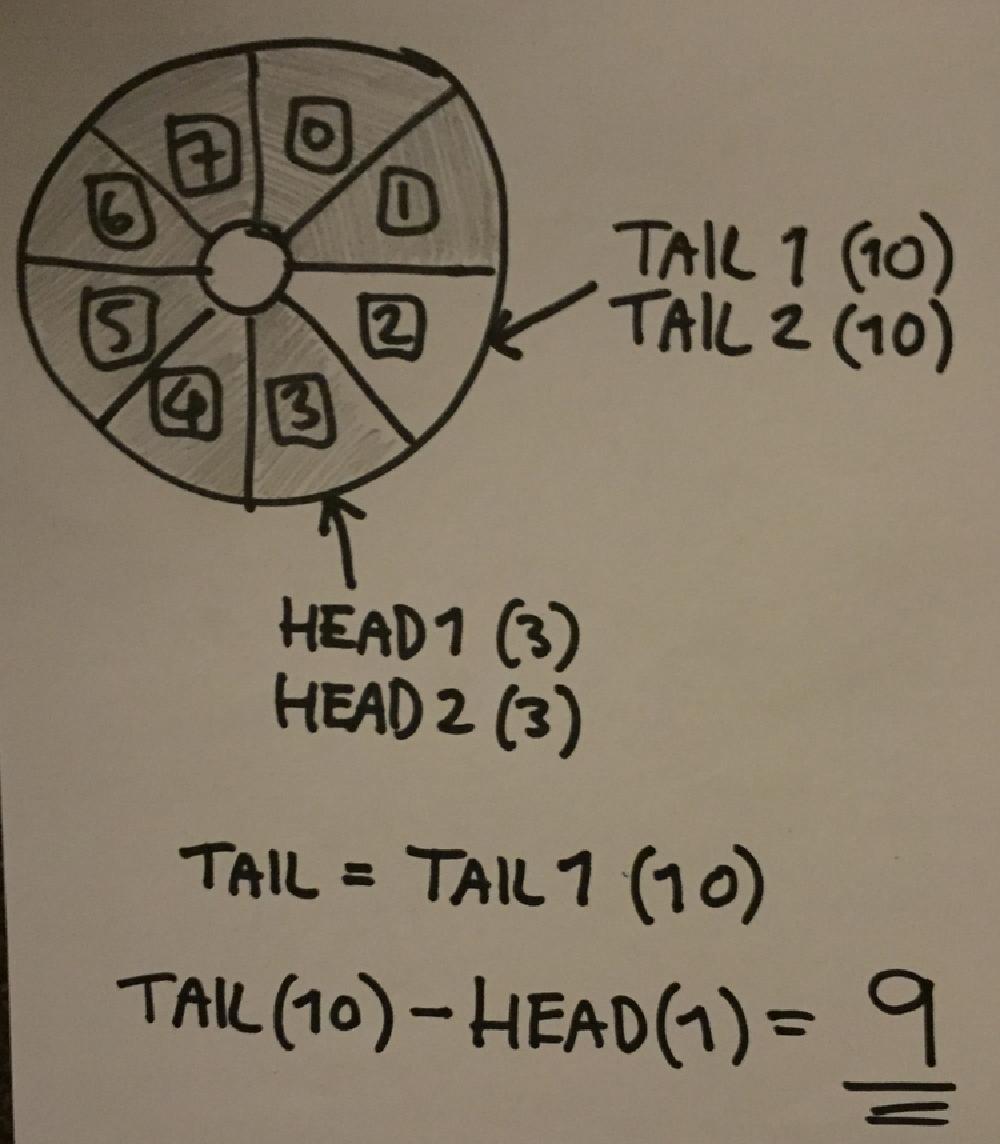 7 0
6 1
5 2
4 3
TAIL 1 (10)
TAIL 2 (10)
HEAD 1 (3)
HEAD 2 (3)
TAIL = TAIL 1 (10)
TAIL (10) - HEAD (1) = 9